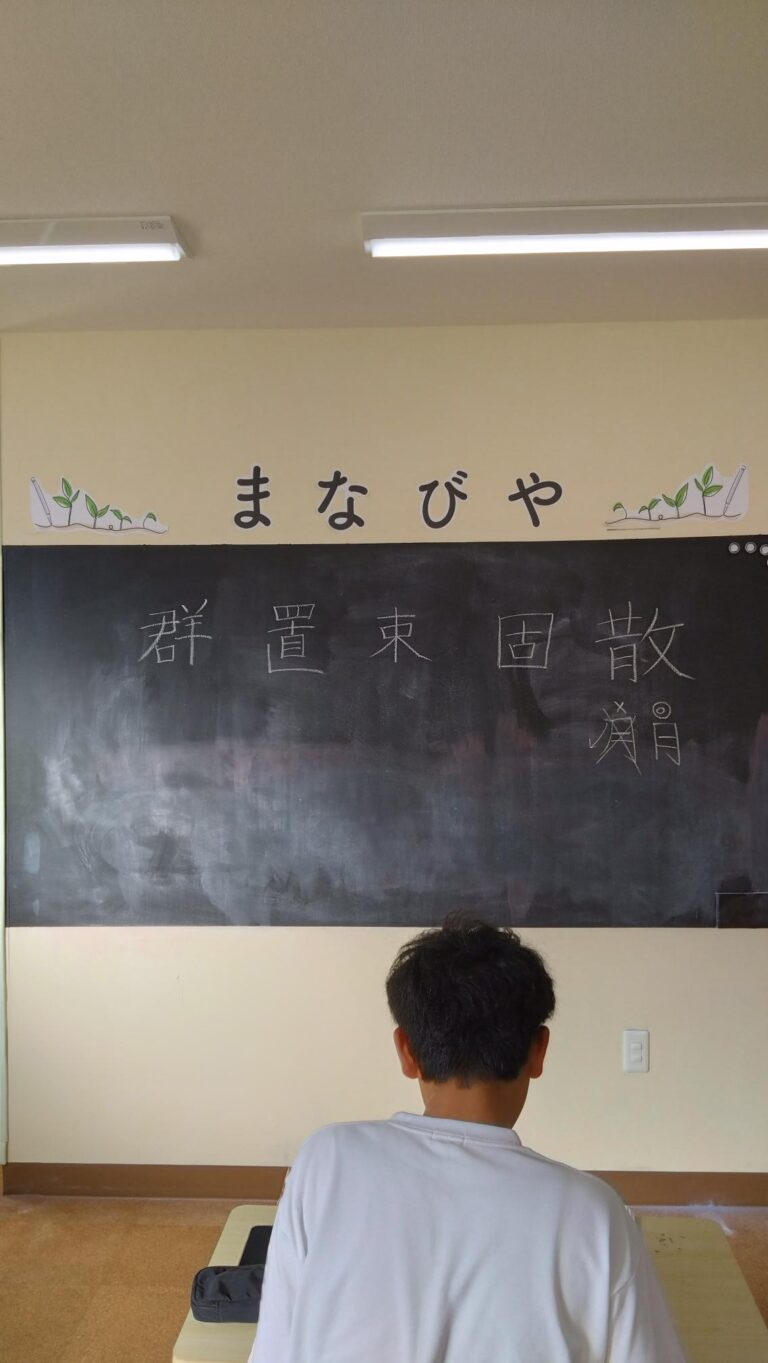 まなびや
群 置 束 固 散